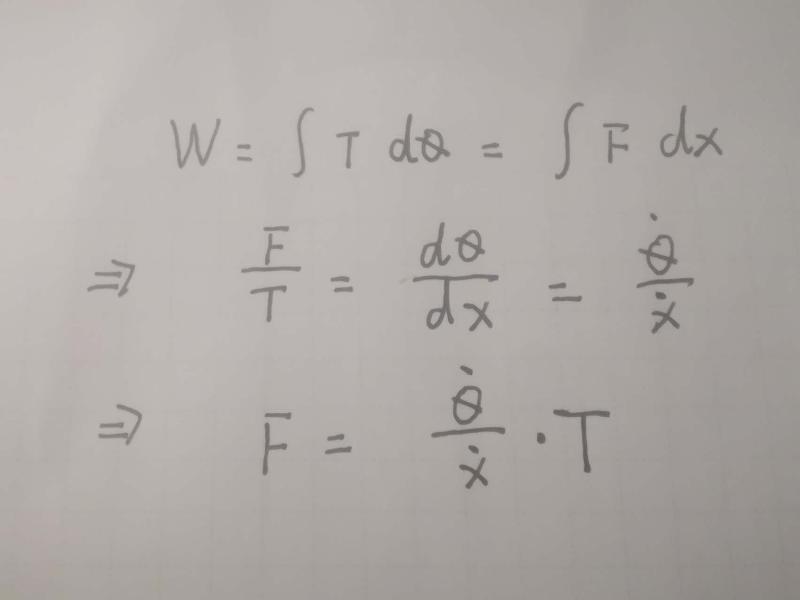 W = ∫ T dθ = ∫ F dx
⇒ F/T = dθ/dx = θ̇/ẋ
⇒ F = θ̇/ẋ · T